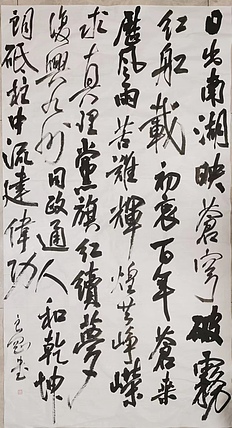 日出南湖映蒼穹破霧
红船載初衷百年蒼来
歷風雨苦難輝煌共崢嶸
求真理黨旗红續夢
復興九州同政通人和乾坤
朗砥柱中流建偉功
書